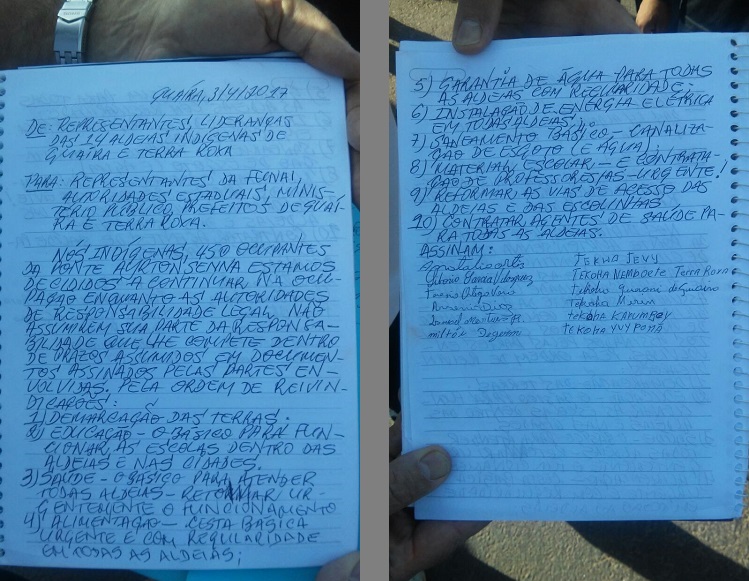 GUAÍRA, 3/4/2017
DE: REPRESENTANTES, LIDERANÇAS
DAS 14 ALDEIAS INDÍGENAS DE
GUAÍRA E TERRA ROXA
PARA: REPRESENTANTES DA FUNAI,
AUTORIDADES ESTADUAIS, MINIS-
TÉRIO PÚBLICO, PREFEITOS DE GUAÍ-
RA E TERRA ROXA.
NÓS INDÍGENAS, 450 OCUPANTES
DA PONTE AYRTON SENNA ESTAMOS
DECIDIDOS A CONTINUAR NA OCU-
PAÇÃO ENQUANTO AS AUTORIDADES
DE RESPONSABILIDADE LEGAL NÃO
ASSUMIREM SUA PARTE DA RESPONSA-
BILIDADE QUE LHE COMPETE DENTRO
DE PRAZOS ASSUMIDOS EM DOCUMEN-
TOS ASSINADOS PELAS PARTES EN-
VOLVIDAS. PELA ORDEM DE REIVIN-
DICAÇÕES:
1) DEMARCAÇÃO DAS TERRAS.
2) EDUCAÇÃO - O BÁSICO PARA FUN-
CIONAR AS ESCOLAS DENTRO DAS
ALDEIAS E NAS CIDADES.
3) SAÚDE - O BÁSICO PARA ATENDER
TODAS ALDEIAS - RETORMAR UR-
GENTEMENTE O FUNCIONAMENTO
4) ALIMENTAÇÃO - CESTA BÁSICA
URGENTE E COM REGULARIDADE
EM TODAS AS ALDEIAS;
5) GARANTIA DE ÁGUA PARA TODAS
AS ALDEIAS COM REGULARIDADE;
6) INSTALAÇÃO DE ENERGIA ELÉTRICA
EM TODAS ALDEIAS;
7) SANEAMENTO BÁSICO - CANALIZA-
ÇÃO DE ESGOTO (E ÁGUA);
8) MATERIAL ESCOLAR - E CONTRATA-
ÇÃO DE PROFESSORES/AS - URGENTE!
9) REFORMAR AS VIAS DE ACESSO DAS
ALDEIAS E DAS ESCOLINHAS
10) CONTRATAR AGENTES DE SAÚDE PA-
RA TODAS AS ALDEIAS.
ASSINAM:
TEKOHA JEVY
TEKOHA NEMBOETE Terra Roxa
tekoha guarani de guaira
Tekoha Mirim
tekoha KARUMBEY
TEKOHA YVY PORÃ